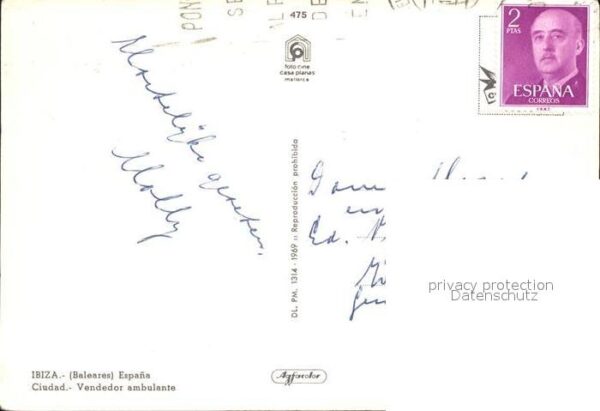 475
foto cine
casa planas
mallorca
2
PTAS
ESPAÑA
CORREOS
Hartelijke groeten,
Molly
DL. PM. 1314 - 1969 :: Reproducción prohibida
en
privacy protection
Datenschutz
IBIZA.- (Baleares) España
Ciudad.- Vendedor ambulante
Agfacolor